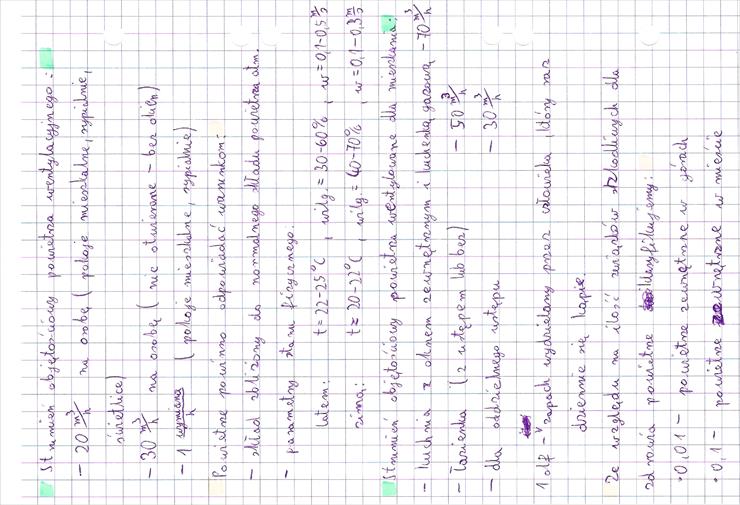 Strumień objętościowy powietrza wentylacyjnego:
– 20 m³/h na osobę (pokoje mieszkalne, sypialnie,
świetlice)
– 30 m³/h na osobę (nie otwierane – bez okien)
– 1 wymiana/h (pokoje mieszkalne, sypialnie)
Powietrze powinno odpowiadać warunkom:
– skład zbliżony do normalnego składu powietrza atm.
– parametry stanu fizycznego:
latem: t = 22-25°C, wilg. = 30-60%, w = 0,1-0,5 m/s
zimą: t = 20-22°C, wilg. = 40-70%, w = 0,1-0,3 m/s
Strumień objętościowy powietrza wentylowane dla mieszkania:
– kuchnia z oknem zewnętrznym i kuchenką gazową – 70 m³/h
– łazienka (z ustępem lub bez) – 50 m³/h
– dla oddzielnego ustępu – 30 m³/h
1 olf – zapach wydzielany przez człowieka, który raz
dziennie się kąpie.
Ze względu na ilość związków szkodliwych dla
zdrowia powietrze klasyfikujemy:
• 0,01 – powietrze zewnętrzne w górach
• 0,1 – powietrze zewnętrzne w mieście